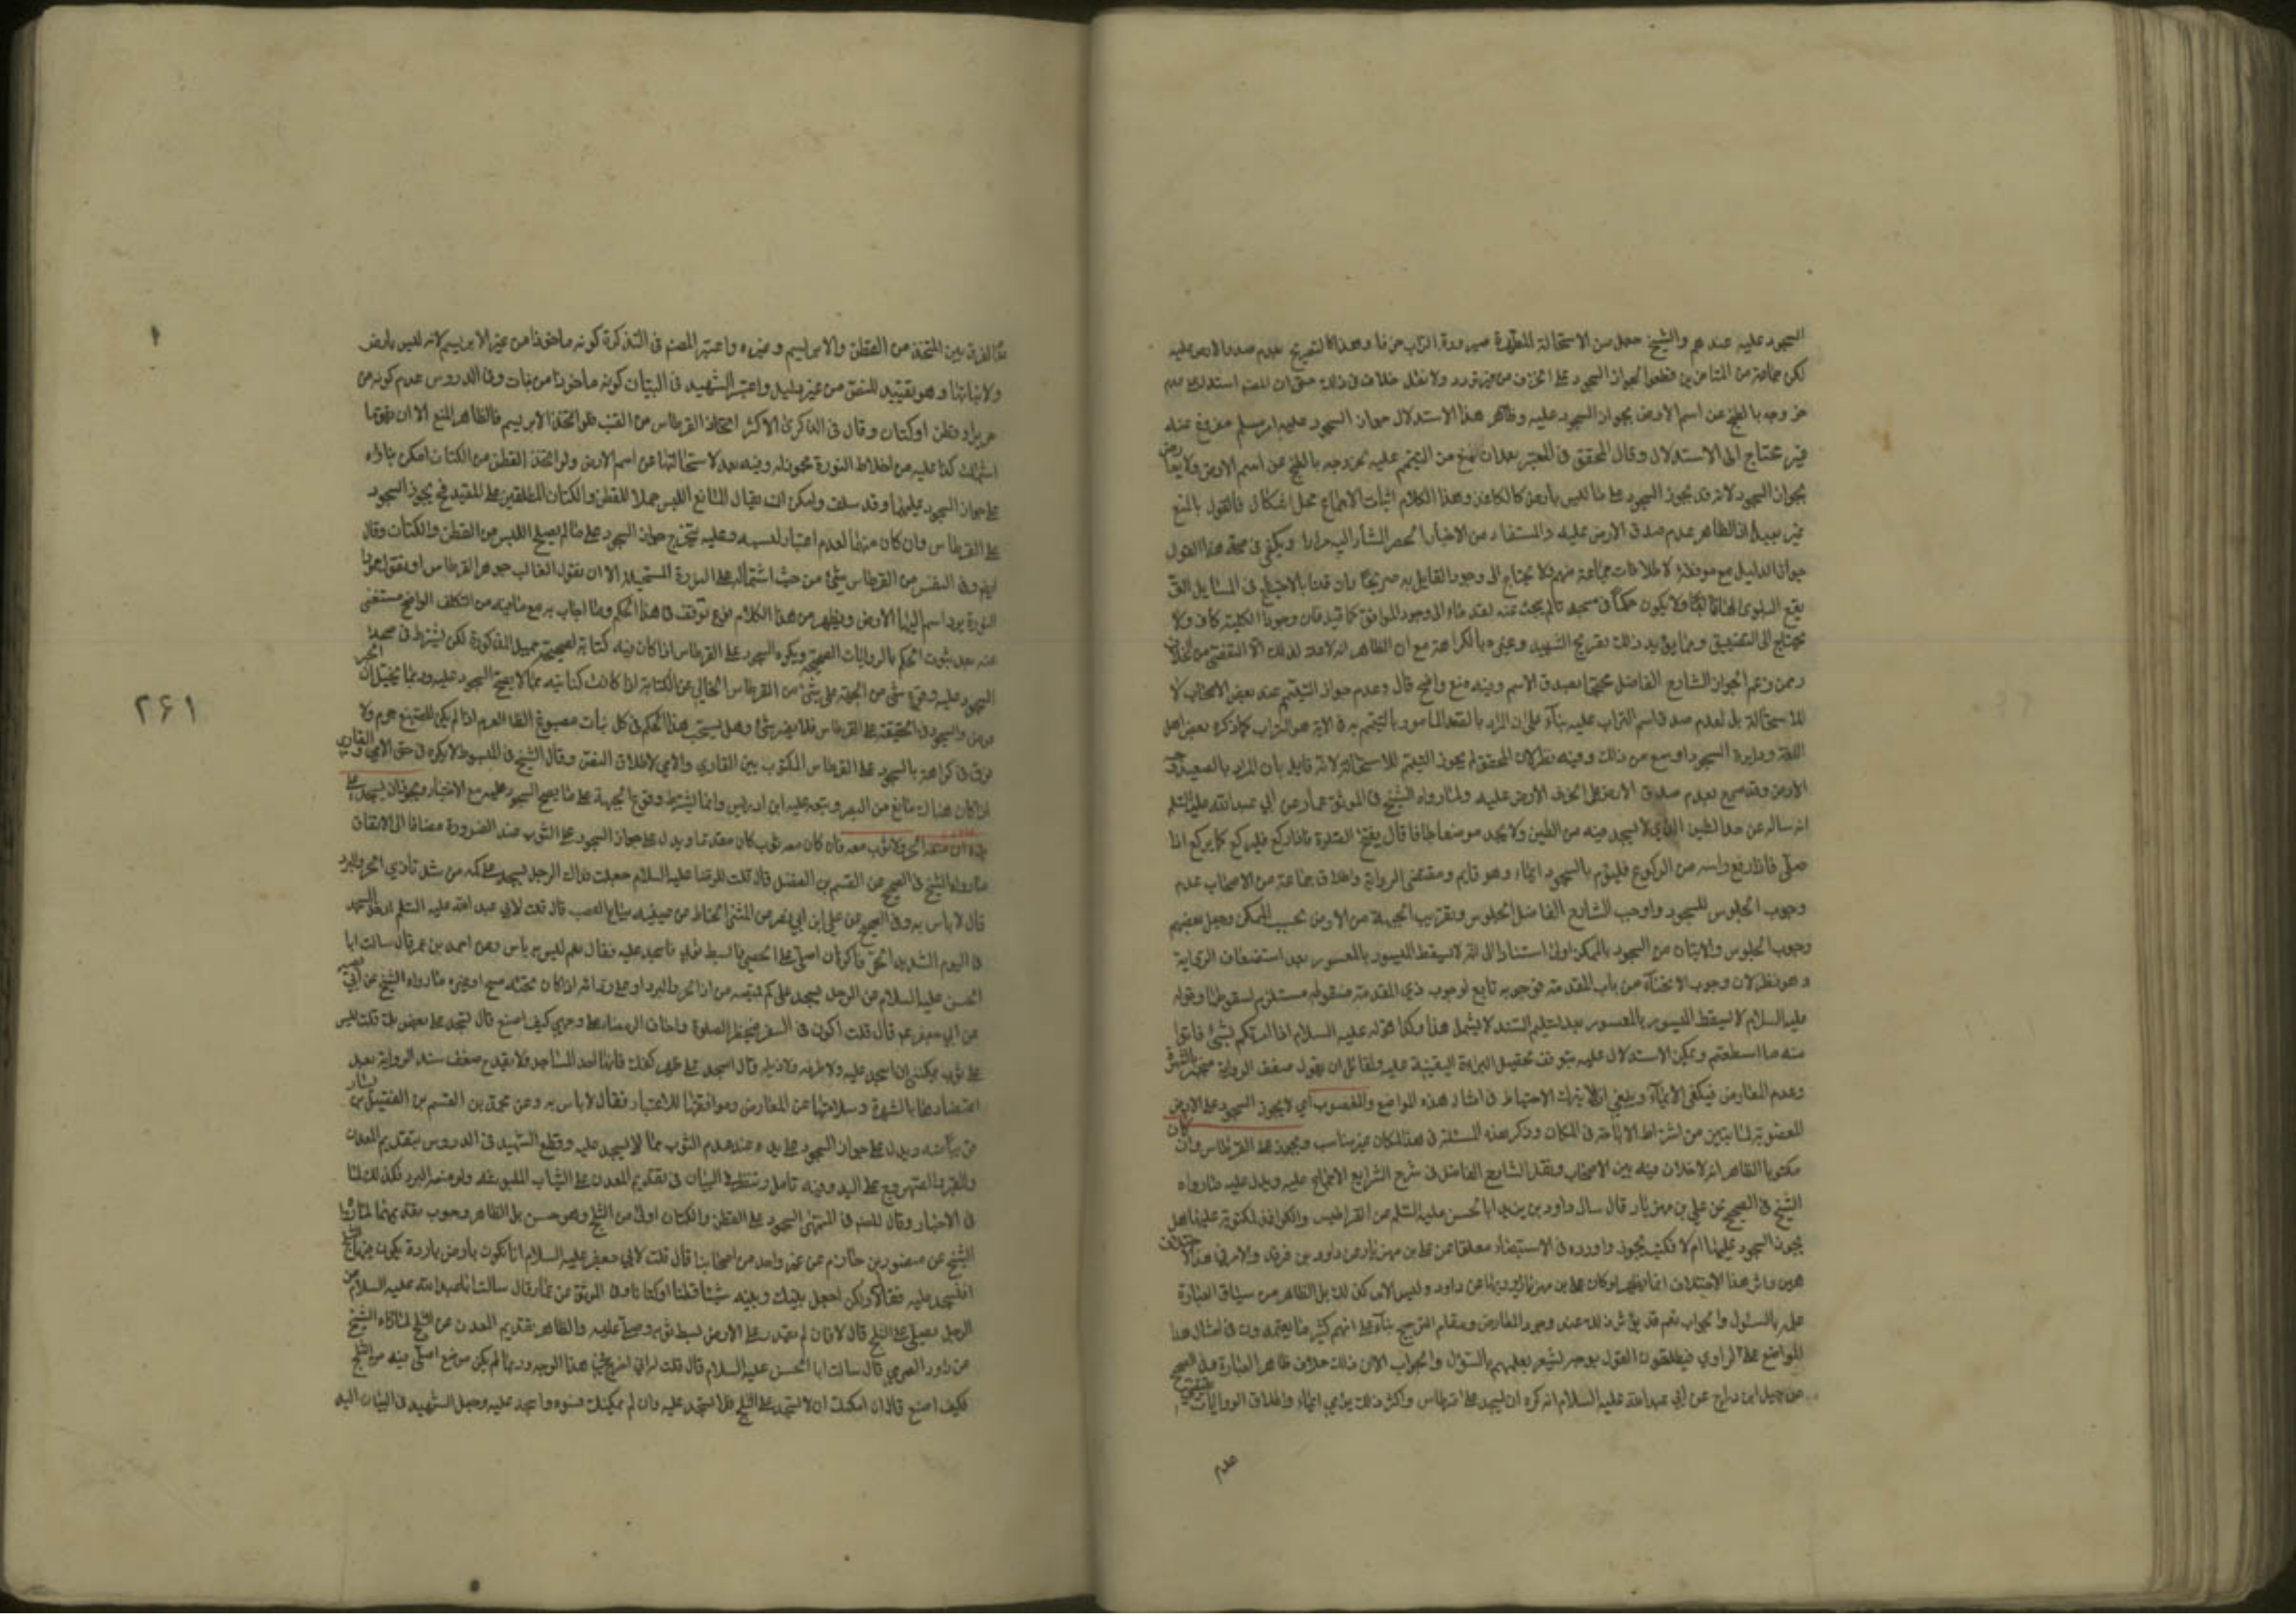 السجود عليه عندهم والشيخ جعل من الاستحالة المطهرة صيرورة التراب خزفا وهذا كالتصريح بعدم صدق الارض عليه
لكن جماعة من المتاخرين قطعوا بجواز السجود على الخزف من غير تردد ولا نقل خلاف في ذلك حتى ان المصنف استدل على عدم
خروجه بالطبخ عن اسم الارض بجواز السجود عليه وظاهر هذا الاستدلال جواز السجود عليه امر مسلم مفروغ عنه
غير محتاج الى الاستدلال وقال المحقق في المعتبر بعد ان منع من التيمم عليه لخروجه بالطبخ عن اسم الارض ولا يعارض
بجواز السجود لانه قد يجوز السجود على ما ليس بارض كالكاغذ وهذا الكلام اثبات الاجماع محل اشكال فالقول بالمنع
غير بعيد اذ الظاهر عدم صدق الارض عليه والمستفاد من الاخبار الحصر المشار اليه مرارا ويكفي في صحة هذا القول
يقع البلوى
يحتاج الى التضييق ومما يؤيد ذلك تصريح الشهيد وغيره بالكراهة مع ان الظاهر انه لا
وممن زعم الجواز الشارع الفاضل محتجا بصدق الاسم وفيه منع واضح قال وعدم جواز التيمم عند بعض الاصحاب لا
للاستحالة بل لعدم صدق اسم التراب عليه بناء على ان المراد بالصعيد المامور بالتيمم به في الاية هو التراب كما ذكره بعض اهل
اللغة ودايرة السجود اوسع من ذلك وفيه نظر لان المحقق لم يجوز التيمم للاستحالة لانه قايل بان المراد بالصعيد وجه
الارض وقد صرح بعدم صدق الارض على الخزف الارض عليه ولما رواه الشيخ في الموثق عمار عن ابي عبد الله عليه السلم
انه ساله عن حد الطين الذي لا يسجد فيه من الطين ولا يجد موضعا جافا قال يفتتح الصلوة فاذا ركع فليركع كما يركع اذا
صلى فاذا رفع راسه من الركوع فليؤم بالسجود ايماء وهو قايم ومقتضى الرواية واطلاق جماعة من الاصحاب عدم
وجوب الجلوس للسجود واوجب الشارع الفاضل الجلوس وتقريب الجبهة من الارض بحسب الممكن وجعل بعضهم
وجوب الجلوس والاتيان من السجود بالممكن اولى استنادا الى انه لا يسقط الميسور بالمعسور بعد استضعاف الرواية
وهو نظر لان وجوب الانحناء من باب المقدمة فوجوبه تابع لوجوب ذي المقدمة فسقوطه مستلزم لسقوطها وقوله
عليه السلام لا يسقط الميسور بالمعسور بعد تسليم السند لا يشمل هذا وكذا قوله عليه السلام اذا امرتكم بشيء فاتوا
منه ما استطعتم ويمكن الاستدلال عليه بتوقف تحصيل البراءة اليقينية عليه ولقائل ان يقول ضعف الرواية منجبر بالشهرة
وعدم المعارض فيكفي الايماء وينبغي ان لا يترك الاحتياط في امثال هذه المواضع والمغصوب اي لا يجوز السجود على الارض
المغصوبة لما تبين من اشتراط الاباحة في المكان وذكر هذه المسئلة في هذا المكان غير مناسب ويجوز على القرطاس وان كان
مكتوبا الظاهر انه لا خلاف فيه بين الاصحاب ونقل الشارع الفاضل في شرح الشرايع الاجماع عليه ويدل عليه ما رواه
الشيخ في الصحيح عن علي بن مهزيار قال سال داود بن يزيد ابا الحسن عليه السلم عن القراطيس والكواغذ المكتوبة عليها هل
يجوز السجود عليها ام لا فكتب يجوز واورده في الاستبصار معلقا عن علي بن مهزيار عن داود بن فرقد والامر في هذا الاختلاف
هين واثر هذا الاختلاف انما يظهر لو كان علي بن مهزيار راويا عن داود وليس الامر كذلك بل الظاهر من سياق العبارة
علمه بالسئول والجواب نعم قد يؤثر ذلك عند وجود المعارض ومقام الترجيح بناء على انهم كثيرا ما يعتمدون في امثال هذا
المواضع على الراوي فيطلقون القول بوجه يشعر بعلمهم بالسؤال والجواب الا ان ذلك خلاف ظاهر العبارة وفي الصحيح
عن جميل ابن دراج عن ابي عبد الله عليه السلام انه كره ان يسجد على قرطاس واكثر ذلك يؤمي ايماء واطلاق الروايات يقتضي
عدم
هذا الفرق بين المتخذ من القطن والابريسم وغيره واعتبر المصنف في التذكرة كونه ماخوذا من غير الابريسم لانه ليس بارض
ولا نباتها وهو تقييد للنص من غير دليل واعتبر الشهيد في البيان كونه ماخوذا من نبات وفي الدروس عدم كونه من
حرير او قطن او كتان وقال في الذكرى الاكثر اتخاذ القرطاس من القنب فلو اتخذ الابريسم فالظاهر المنع الا ان يقال ما
اشتمل عليه من اخلاط النورة مجوز له وفيه بعد لاستحالتها عن اسم الارض ولو اتخذ القطن من الكتان امكن بناؤه
على جواز السجود عليهما وقد سلف وامكن ان يقال المانع اللبس حملا للقطن والكتان المطلقين على المقيد فح يجوز السجود
على القرطاس وان كان منهما لعدم اعتبار لبسه وعليه يتخرج جواز السجود على ما لم يصلح اللبس من القطن والكتان وقال
ايضا وفي النفس من القرطاس شيء من حيث اشتماله على النورة المستحيلة الا ان نقول الغالب جوهر القرطاس او نقول جمود
النورة يرد اسم اليها الارض ويظهر من هذا الكلام نوع توقف في هذا الحكم وما اجاب به مع ما فيه من التكلف الواضح مستغنى
عنه بعد ثبوت الحكم بالروايات الصحيحة ويكره السجود على القرطاس اذا كان فيه كتابة لصحيحة جميل المذكورة لكن يشترط في صحة
السجود عليه وقوع شيء من الجبهة على شيء من القرطاس الخالي عن الكتابة اذا كانت كتابته مما لا يصح السجود عليه وربما يتخيل ان
فرق في كراهة بالسجود على القرطاس المكتوب بين القاري والامي لاطلاق النص وقال الشيخ في المبسوط لا يكره في حق الامي والقاري
اذا كان هناك مانع من البصر وتبعه عليه ابن ادريس وانما يشترط وقوع الجبهة على ما يصح السجود عليه مع الاختيار ويجوز ان يسجد على
يده ان منعه الحر ولا ثوب معه فان كان معه ثوب كان مقدما ويدل على جواز السجود على الثوب عند الضرورة مضافا الى الاتفاق
ما رواه الشيخ في الصحيح عن القسم بن الفضل قال قلت للرضا عليه السلام جعلت فداك الرجل يسجد على كمه من شدة اذى الحر والبرد
قال لا باس به وفي الصحيح عن علي ابن ابي نصر عن المثنى الحناط عن عيينه بياع القصب قال قلت لابي عبد الله عليه السلم ادخل المسجد
في اليوم الشديد الحر فاكره ان اصلي على الحصى فابسط ثوبي فاسجد عليه فقال نعم ليس به باس وعن احمد بن عمر قال سالت ابا
الحسن عليه السلام عن الرجل يسجد على كم قميصه من اذى الحر والبرد او على ردائه اذا كان تحته مسح او غيره ما رواه الشيخ عن ابي بصير
عن ابي جعفر عم قال قلت اكون في السفر فتحضر الصلوة واخاف الرمضاء على وجهي كيف اصنع قال تسجد على بعض ثوبك قلت ليس
على ثوب يمكنني ان اسجد عليه ولا طرفه ولا ذيله قال اسجد على ظهر كفك فانها احد المساجد ولا يقدح ضعف سند الرواية بعد
اعتضادها بالشهرة وسلامتها عن المعارض وموافقتها للاعتبار فقال لا باس به وعن محمد بن القسم بن الفضيل بن يسار
ويدل على جواز السجود على يده عند عدم الثوب مما لا يسجد عليه وقطع الشهيد في الدروس بتقديم المعدن
في الاخبار وقال المصنف في المنتهى السجود على القطن والكتان اولى من الثلج وهو حسن بل الظاهر وجوب تقديمهما لما رواه
الشيخ عن منصور بن حازم عن غير واحد من اصحابنا قال قلت لابي جعفر عليه السلام انا نكون بارض باردة يكون فيها الثلج
افنسجد عليه فقال لا ولكن اجعل بينك وبينه شيئا قطنا او كتانا وفي الموثق عن عمار قال سالت ابا عبد الله عليه السلام عن
الرجل يصلي على الثلج قال لا فان لم يقدر على الارض بسط ثوبه وصلى عليه والظاهر تقديم المعدن عن الثلج لما رواه الشيخ
عن داود الصرمي قال سالت ابا الحسن عليه السلام قال قلت له اني اخرج في هذا الوجه وربما لم يكن موضع اصلي فيه من الثلج
فكيف اصنع قال ان امكنك ان لا تسجد على الثلج فلا تسجد عليه وان لم يمكنك فسوه واسجد عليه وجعل الشهيد في البيان اليد
۲۶۱